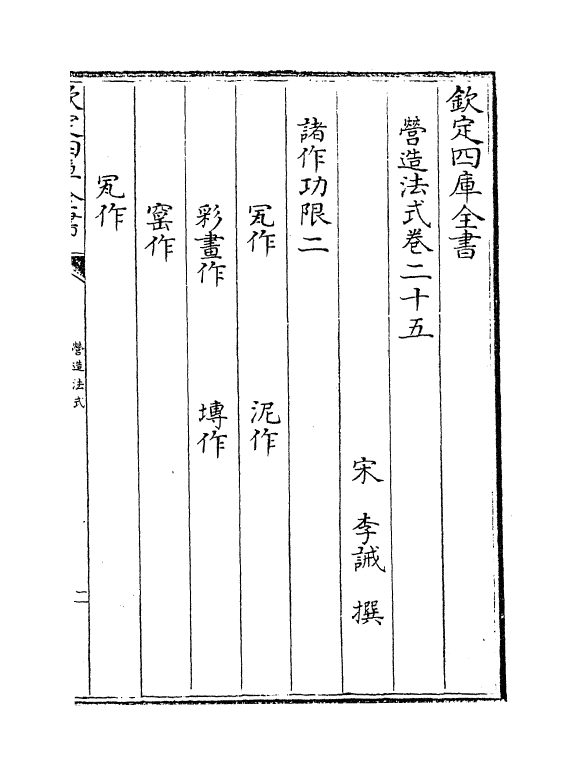 欽定四庫全書
營造法式卷二十五
宋 李誡 撰
諸作功限二
瓦作 泥作
彩畫作 塼作
窰作
瓦作
欽定四庫全書
營造法式